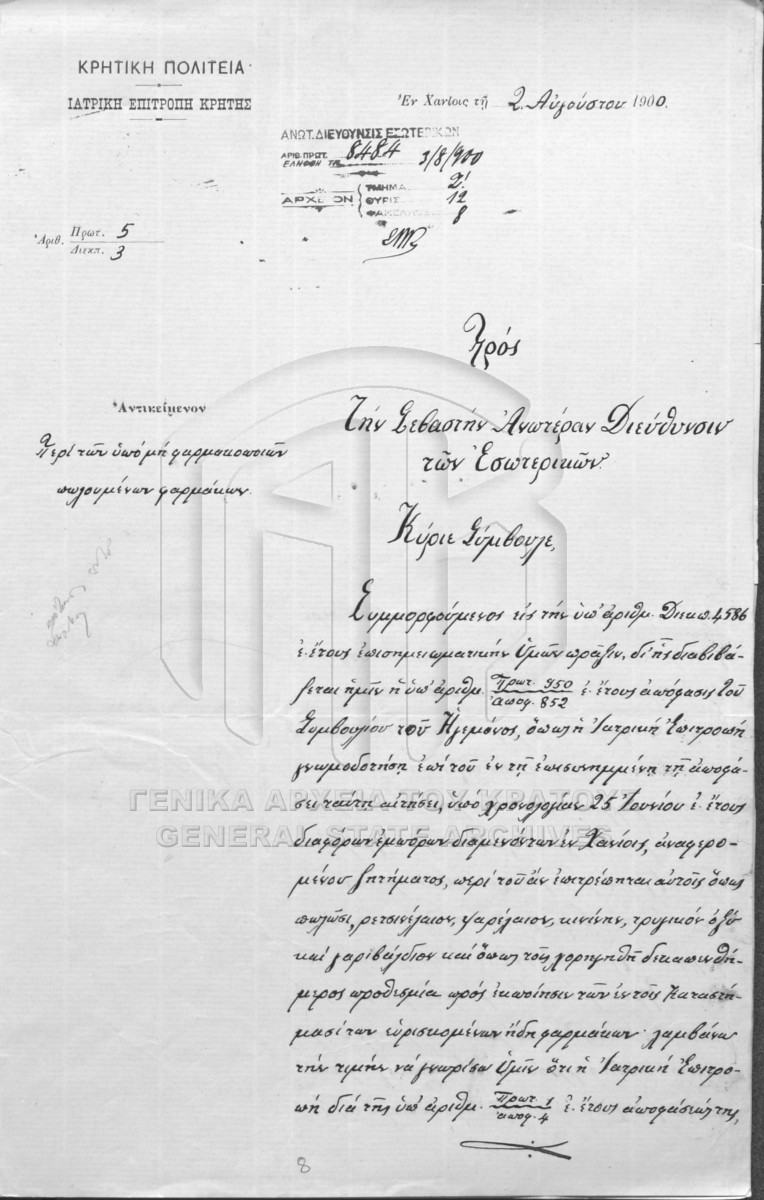 ΚΡΗΤΙΚΗ ΠΟΛΙΤΕΙΑ
ΙΑΤΡΙΚΗ ΕΠΙΤΡΟΠΗ ΚΡΗΤΗΣ
Ἐν Χανίοις τῇ 2 Αὐγούστου 1900.
ΑΝΩΤ. ΔΙΕΥΘΥΝΣΙΣ ΕΣΩΤΕΡΙΚΩΝ
ΑΡΙΘ. ΠΡΩΤ. 8484
ΕΛΗΦΘΗ ΤΗ 3/8/900
ΑΡΧΕΙΟΝ
ΤΜΗΜΑ 2!
ΘΥΡΙΣ 12
ΦΑΚΕΛΛΟΣ 8
Ἀριθ. Πρωτ. 5
Διεκπ. 3
Πρός
Τὴν Σεβαστὴν Ἀνωτέραν Διεύθυνσιν
τῶν Ἐσωτερικῶν.
Ἀντικείμενον
Περὶ τῶν ὑπὸ μὴ φαρμακοποιῶν
πωλουμένων φαρμάκων.
Κύριε Σύμβουλε,
Συμμορφούμενος εἰς τὴν ὑπ' ἀριθμ. Διεκπ. 4586
ἐ. ἔτους ἐπισημειωματικὴν Ὑμῶν πρᾶξιν, δι' ἧς διαβιβά-
ζεται ἡμῖν ἡ ὑπ' ἀριθμ. Πρωτ. 950 / ἀποφ. 852 ἐ. ἔτους ἀπόφασις τοῦ
Συμβουλίου τοῦ Ἡγεμόνος, ὅπως ἡ Ἰατρικὴ Ἐπιτροπὴ
γνωμοδοτήσῃ ἐπὶ τοῦ ἐν τῇ ἐπισυνημμένῃ τῇ ἀποφά-
σει ταύτῃ αἰτήσει, ὑπὸ χρονολογίαν 25 Ἰουνίου ἐ. ἔτους
διαφόρων ἐμπόρων διαμενόντων ἐν Χανίοις, ἀναφερο-
μένου ζητήματος, περὶ τοῦ ἂν ἐπιτρέπηται αὐτοῖς ὅπως
πωλῶσι, ρετσινέλαιον, ψαρέλαιον, κινίνην, τρυγικὸν ὀξὺ
καὶ γαριβάλδιον καὶ ὅπως τοῖς χορηγηθῇ δεκαπενθή-
μερος προθεσμία πρὸς ἐκποίησιν τῶν ἐν τοῖς καταστή-
μασί των εὑρισκομένων ἤδη φαρμάκων· λαμβάνω
τὴν τιμὴν νὰ γνωρίσω Ὑμῖν ὅτι ἡ Ἰατρικὴ Ἐπιτρο-
πὴ διὰ τῆς ὑπ' ἀριθμ. Πρωτ. 1 / ἀποφ. 4 ἐ. ἔτους ἀποφάσεώς της,
8
ΓΕΝΙΚΑ ΑΡΧΕΙΑ ΤΟΥ ΚΡΑΤΟΥΣ
GENERAL STATE ARCHIVES